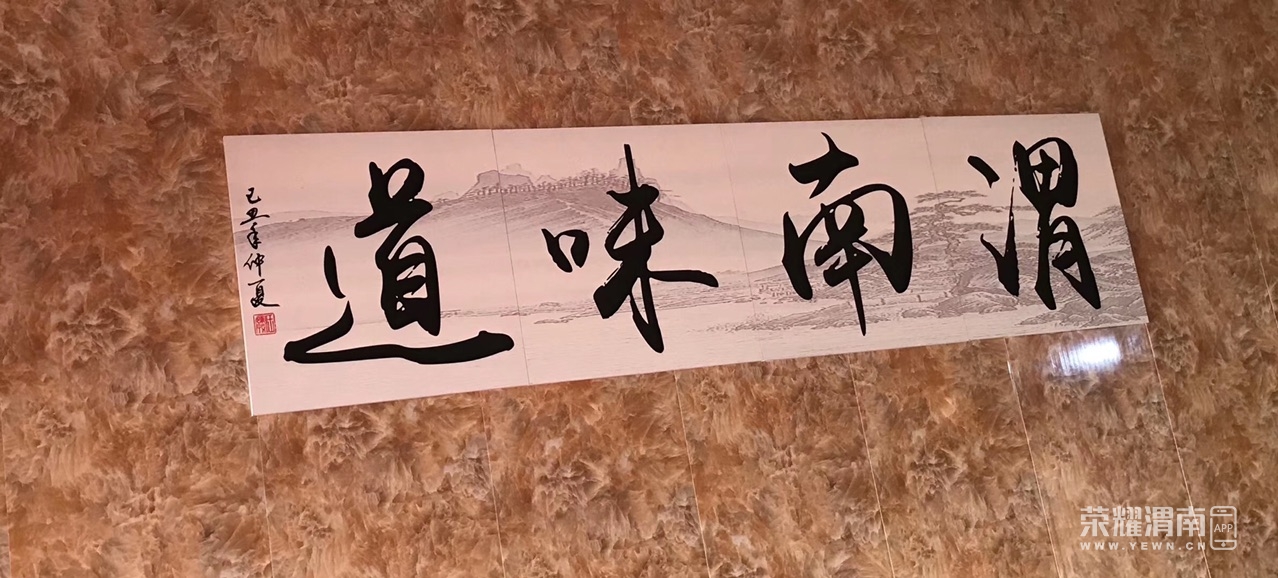 渭南味道
己丑年仲夏
荣耀渭南 APP
WWW.YEWN.CN